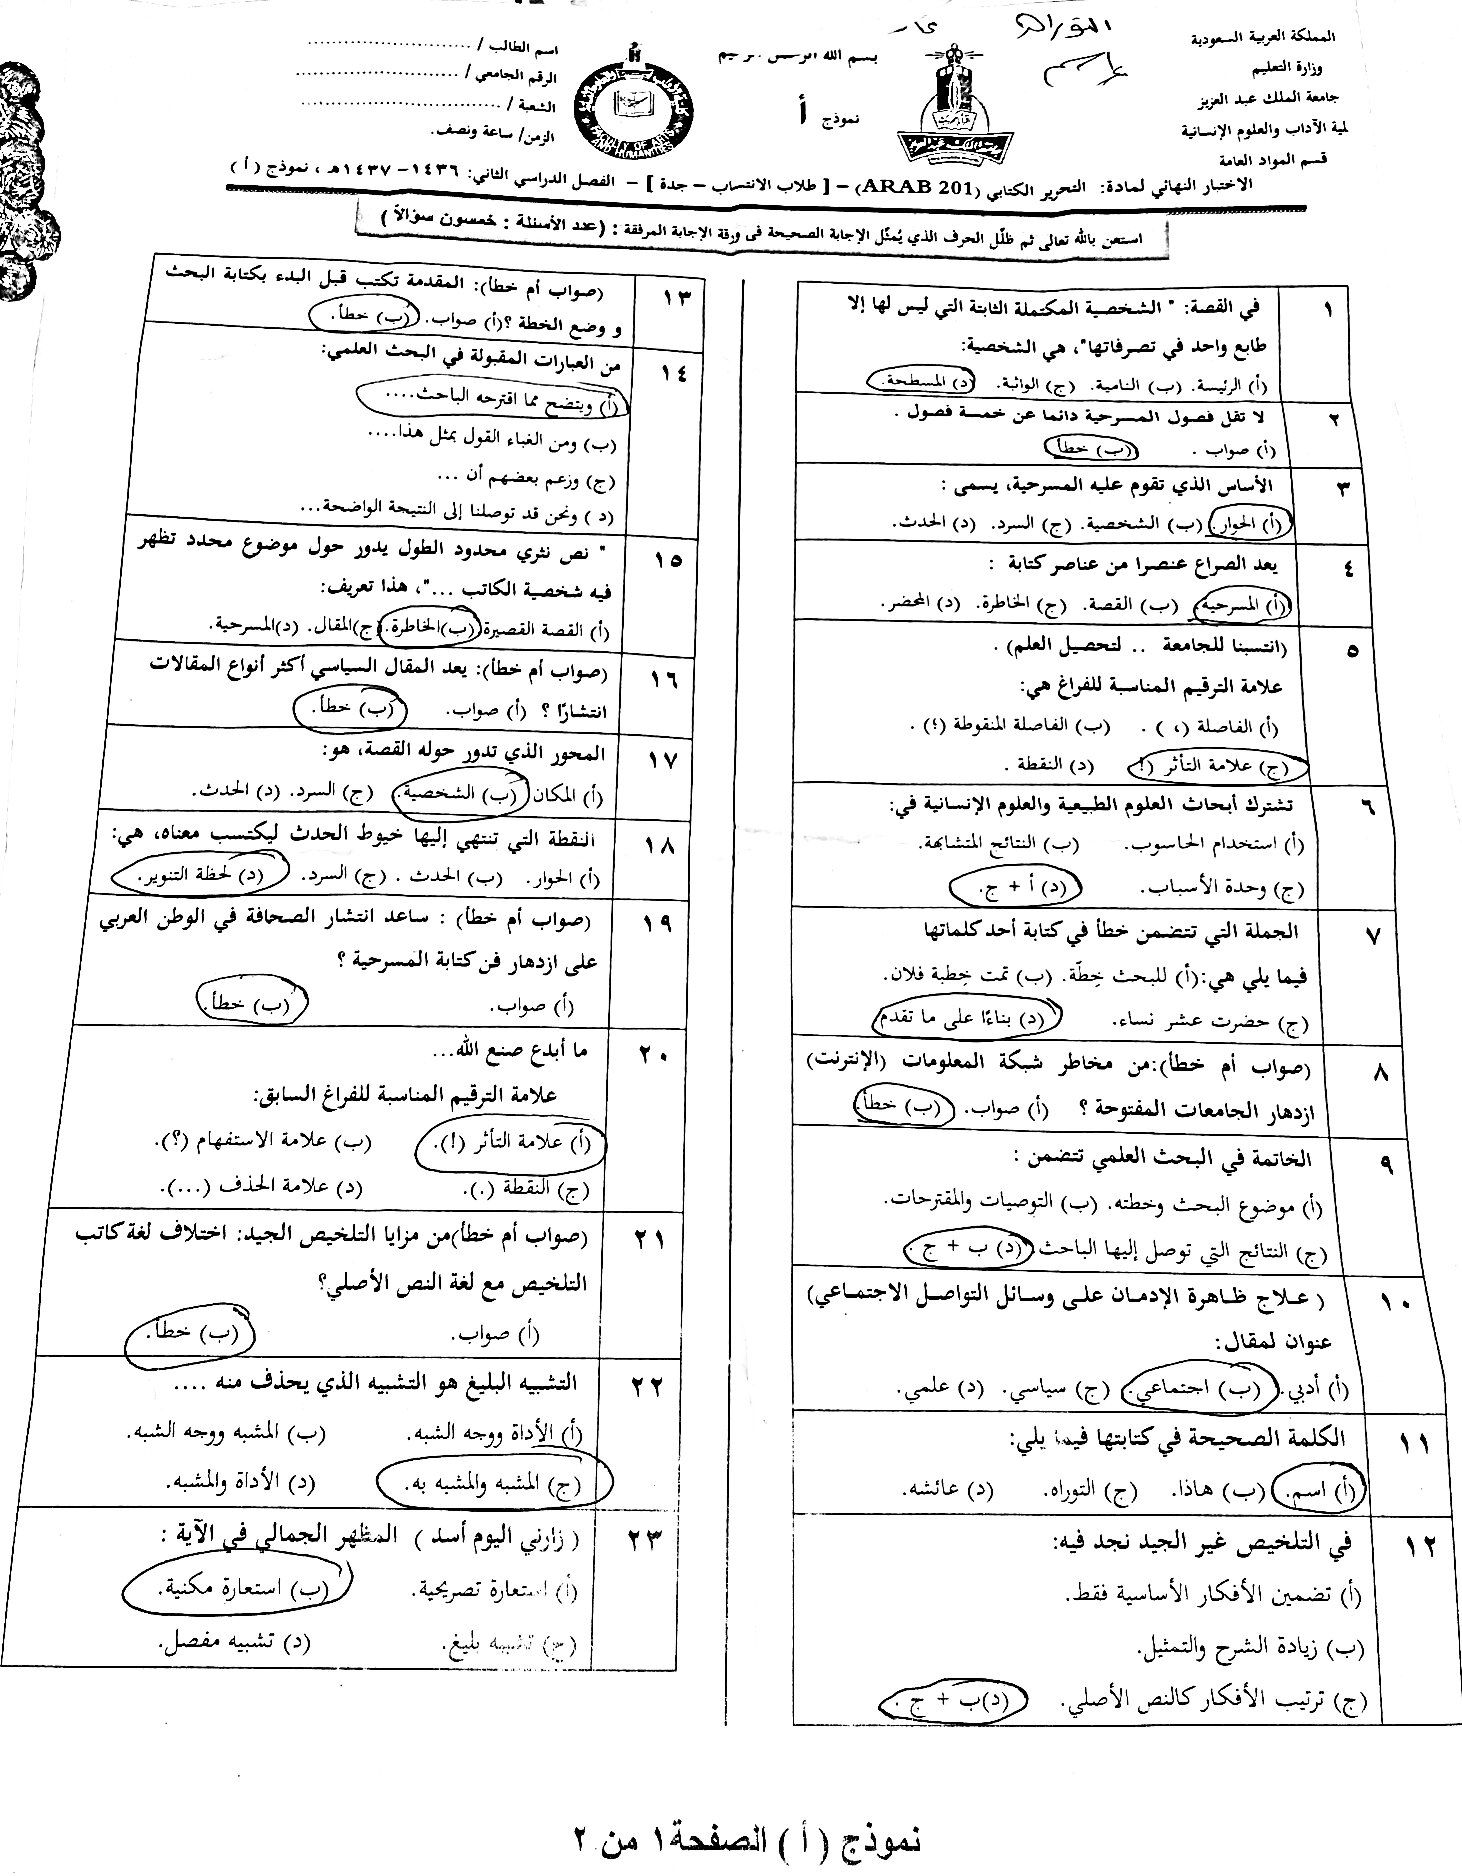 التوراة
اسم
المملكة العربية السعودية
وزارة التعليم
جامعة الملك عبد العزيز
لية الآداب والعلوم الإنسانية
قسم المواد العامة
بسم الله الرحمن الرحيم
نموذج أ
FACULTY OF ARTS AND HUMANITIES
اسم الطالب / ........................
الرقم الجامعي / ........................
الشعبة / ........................
الزمن/ ساعة ونصف.
الاختبار النهائي لمادة: التحرير الكتابي (ARAB 201) – [ طلاب الانتساب – جدة ] – الفصل الدراسي الثاني: ١٤٣٦-١٤٣٧هـ ، نموذج ( أ )
استعن بالله تعالى ثم ظلّل الحرف الذي يُمثّل الإجابة الصحيحة في ورقة الإجابة المرفقة : (عدد الأسئلة : خمسون سؤالاً )
١ في القصة: " الشخصية المكتملة الثابتة التي ليس لها إلا
طابع واحد في تصرفاتها"، هي الشخصية:
(أ) الرئيسة. (ب) النامية. (ج) الواثبة. (د) المسطحة.
٢ لا تقل فصول المسرحية دائما عن خمسة فصول .
(أ) صواب . (ب) خطأ
٣ الأساس الذي تقوم عليه المسرحية، يسمى :
(أ) الحوار. (ب) الشخصية. (ج) السرد. (د) الحدث.
٤ يعد الصراع عنصرا من عناصر كتابة :
(أ) المسرحية (ب) القصة. (ج) الخاطرة. (د) المحضر.
٥ (انتسبنا للجامعة .. لتحصيل العلم) .
علامة الترقيم المناسبة للفراغ هي:
(أ) الفاصلة (،) . (ب) الفاصلة المنقوطة (؛) .
(ج) علامة التأثر (!) (د) النقطة .
٦ تشترك أبحاث العلوم الطبيعية والعلوم الإنسانية في:
(أ) استخدام الحاسوب. (ب) النتائج المتشابهة.
(ج) وحدة الأسباب. (د) أ + ج.
٧ الجملة التي تتضمن خطأ في كتابة أحد كلماتها
فيما يلي هي:(أ) للبحث خِطّة. (ب) تمت خِطبة فلان.
(ج) حضرت عشر نساء. (د) بناءًا على ما تقدم
٨ (صواب أم خطأ):من مخاطر شبكة المعلومات (الإنترنت)
ازدهار الجامعات المفتوحة ؟ (أ) صواب. (ب) خطأ
٩ الخاتمة في البحث العلمي تتضمن :
(أ) موضوع البحث وخطته. (ب) التوصيات والمقترحات.
(ج) النتائج التي توصل إليها الباحث (د) ب + ج .
١٠ ( علاج ظاهرة الإدمان على وسائل التواصل الاجتماعي)
عنوان لمقال:
(أ) أدبي. (ب) اجتماعي. (ج) سياسي. (د) علمي.
١١ الكلمة الصحيحة في كتابتها فيما يلي:
(أ) اسم. (ب) هاذا. (ج) التوراه. (د) عائشه.
١٢ في التلخيص غير الجيد نجد فيه:
(أ) تضمين الأفكار الأساسية فقط.
(ب) زيادة الشرح والتمثيل.
(ج) ترتيب الأفكار كالنص الأصلي. (د)ب + ج .
١٣ (صواب أم خطأ): المقدمة تكتب قبل البدء بكتابة البحث
و وضع الخطة ؟(أ) صواب. (ب) خطأ.
١٤ من العبارات المقبولة في البحث العلمي:
(أ) ويتضح مما اقترحه الباحث....
(ب) ومن الغباء القول بمثل هذا....
(ج) وزعم بعضهم أن ...
(د ) ونحن قد توصلنا إلى النتيجة الواضحة...
١٥ " نص نثري محدود الطول يدور حول موضوع محدد تظهر
فيه شخصية الكاتب ..."، هذا تعريف:
(أ) القصة القصيرة (ب)الخاطرة. (ج)المقال. (د)المسرحية.
١٦ (صواب أم خطأ): يعد المقال السياسي أكثر أنواع المقالات
انتشارًا ؟ (أ) صواب. (ب) خطأ.
١٧ المحور الذي تدور حوله القصة، هو:
(أ) المكان (ب) الشخصية. (ج) السرد. (د) الحدث.
١٨ النقطة التي تنتهي إليها خيوط الحدث ليكتسب معناه، هي:
(أ) الحوار. (ب) الحدث . (ج) السرد. (د) لحظة التنوير.
١٩ (صواب أم خطأ) : ساعد انتشار الصحافة في الوطن العربي
على ازدهار فن كتابة المسرحية ؟
(أ) صواب. (ب) خطأ.
٢٠ ما أبدع صنع الله...
علامة الترقيم المناسبة للفراغ السابق:
(أ) علامة التأثر (!). (ب) علامة الاستفهام (؟).
(ج) النقطة (.). (د) علامة الحذف (...).
٢١ (صواب أم خطأ)من مزايا التلخيص الجيد: اختلاف لغة كاتب
التلخيص مع لغة النص الأصلي؟
(أ) صواب. (ب) خطأ.
٢٢ التشبيه البليغ هو التشبيه الذي يحذف منه ....
(أ) الأداة ووجه الشبه. (ب) المشبه ووجه الشبه.
(ج) المشبه والمشبه به. (د) الأداة والمشبه.
٢٣ ( زارني اليوم أسد ) المظهر الجمالي في الآية :
(أ) استعارة تصريحية. (ب) استعارة مكنية.
(ج) تشبيه بليغ. (د) تشبيه مفصل.
نموذج ( أ ) الصفحة ١ من ٢